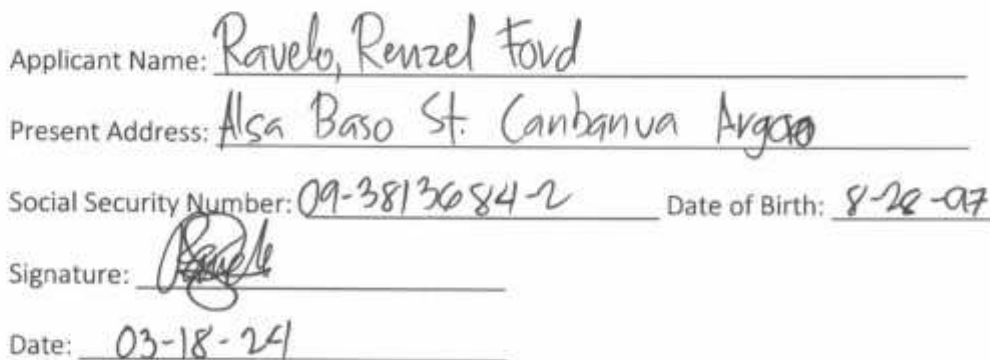 Applicant Name: Ravelo, Renzel Ford
Present Address: Alsa Baso St. Canbanua Argao
Social Security Number: 09-3813684-2 Date of Birth: 8-28-97
Signature: Ravelo
Date: 03-18-24